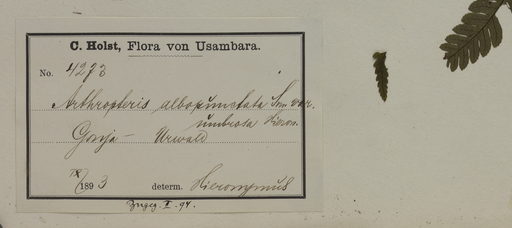 C. Holst, Flora von Usambara.
No. 4273
Arthropteris albopunctata Sm. var.
umbrosa Hieron.
Gonja - Urwald
IX/1893 determ. Hieronymus
Zugeg. I. 94.